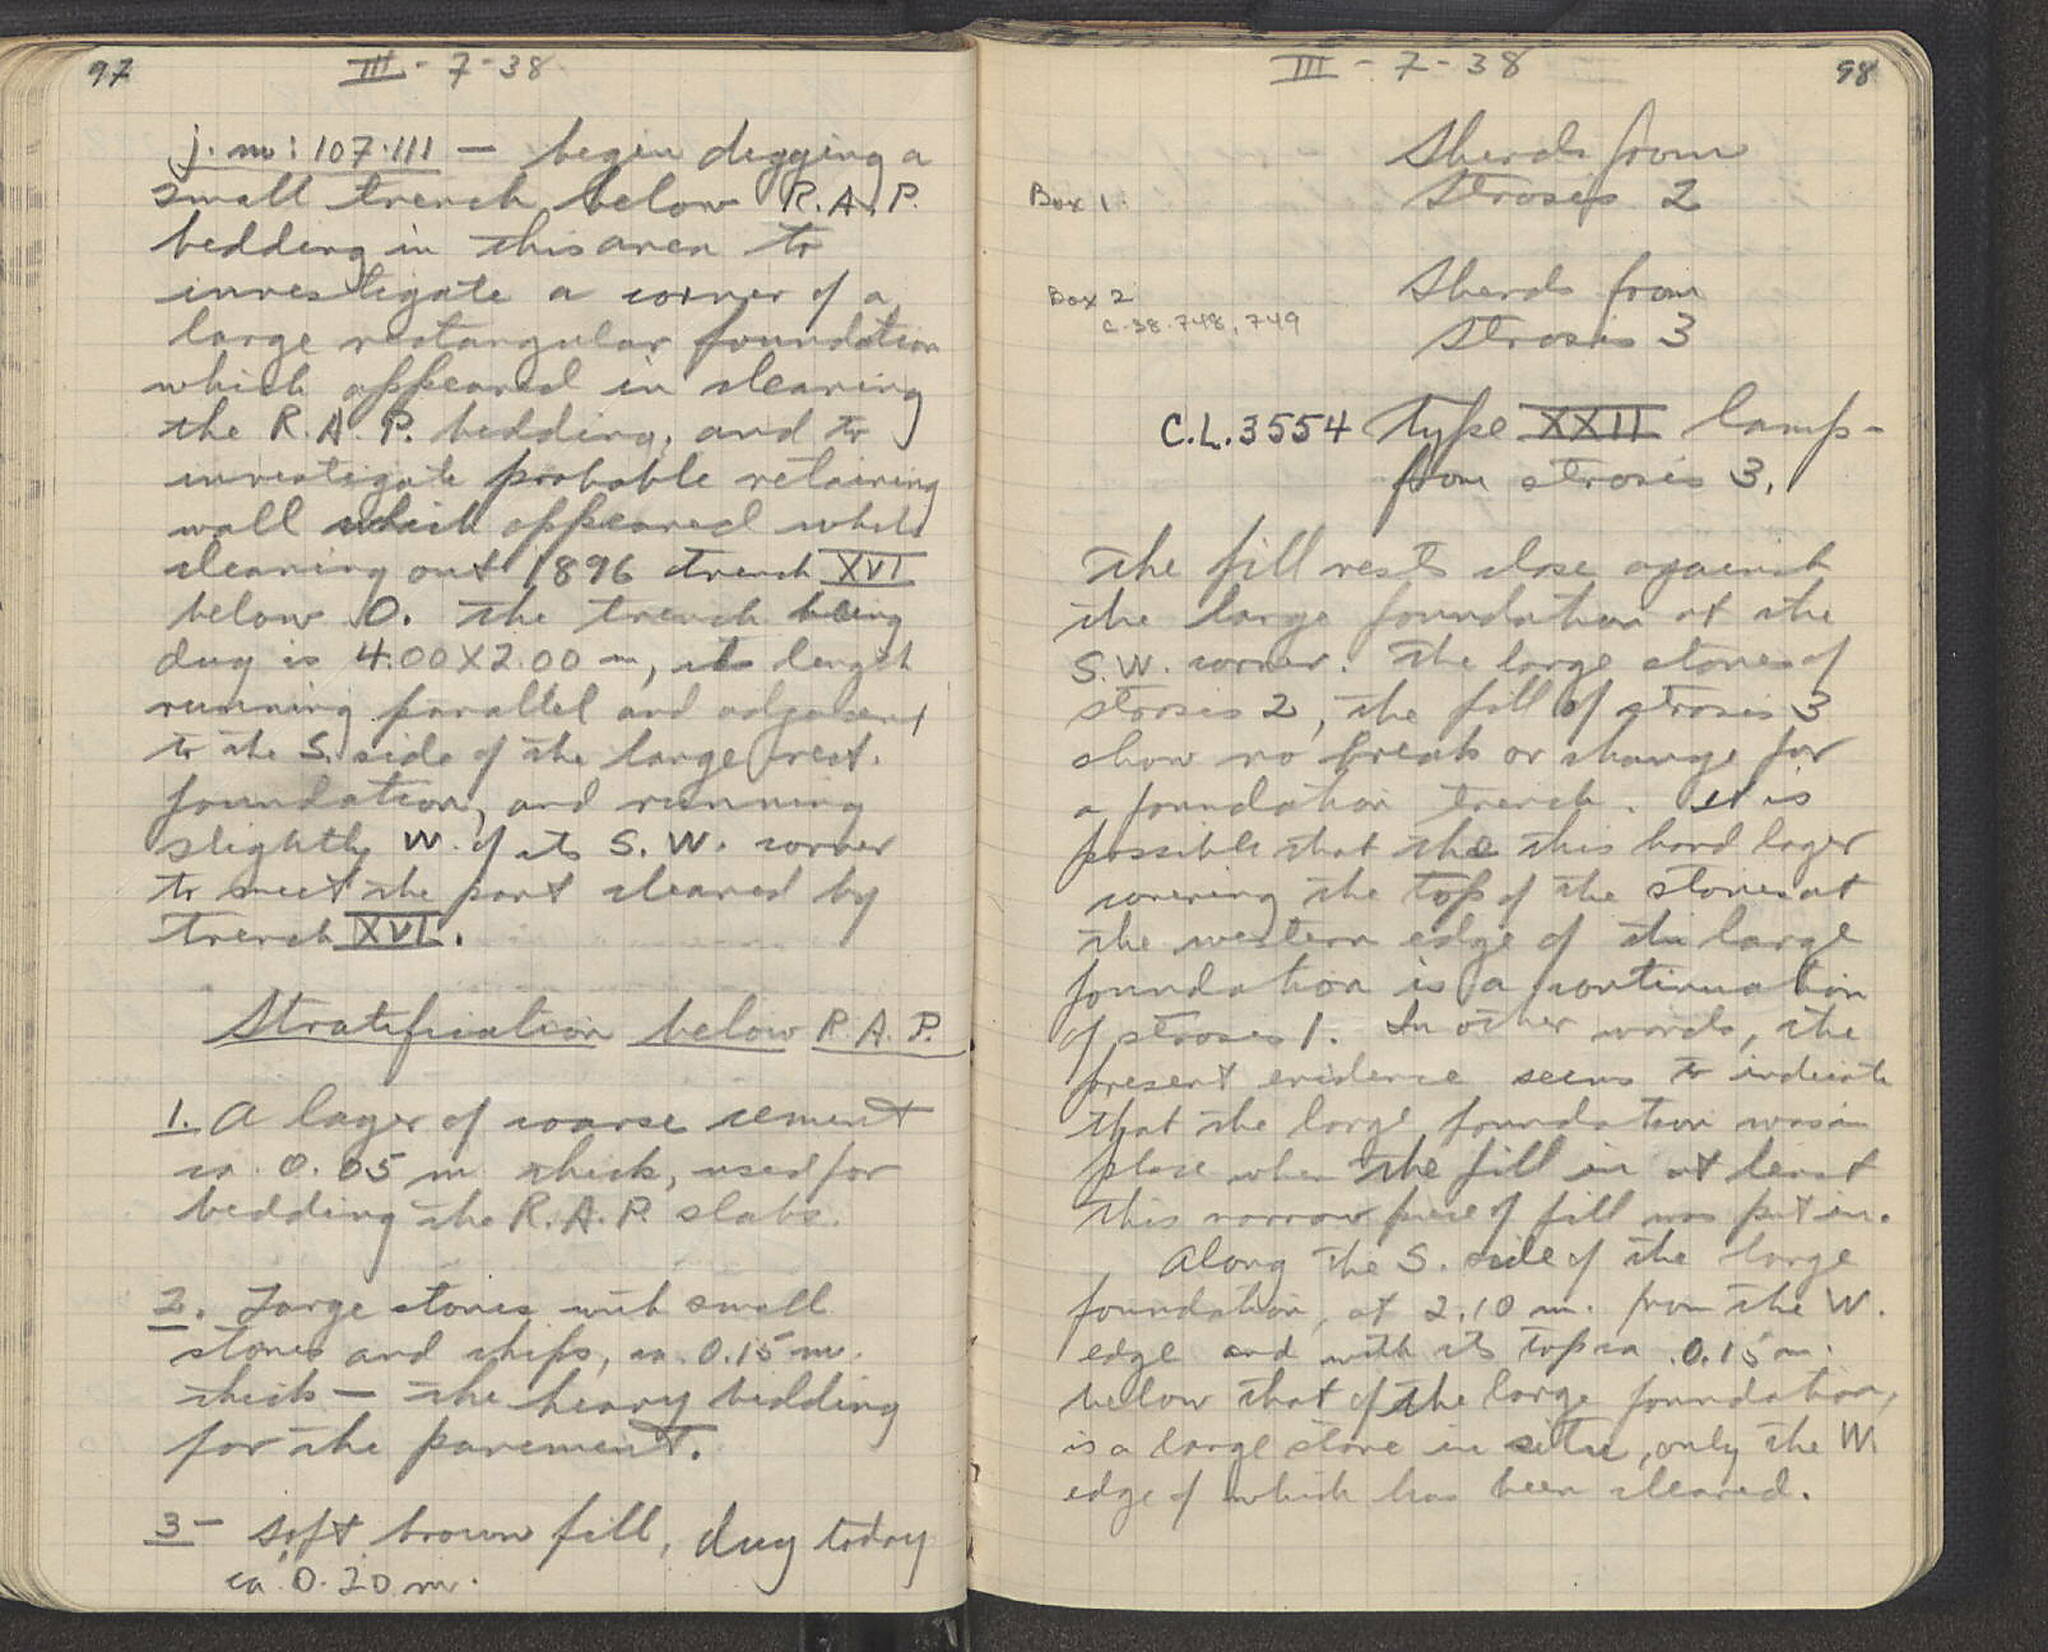 97
III - 7-38
j. m: 107·111 — begin digging a
small trench below R.A.P.
bedding in this area to
investigate a corner of a
large rectangular foundation
which appeared in clearing
the R.A.P. bedding, and to
investigate probable retaining
wall which appeared while
cleaning out 1896 trench XVI
below O. The trench being
dug is 4.00X2.00 m, its length
running parallel and adjacent
to the S. side of the large rect.
foundation, and running
slightly W. of its S.W. corner
to meet the part cleared by
trench XVI.
Stratification below R.A.P.
1. A layer of coarse cement
ca. 0.05 m thick, used for
bedding the R.A.P. slabs.
2. Large stones with small
stones and chips, ca. 0.15 m.
thick — the heavy bedding
for the pavement.
3 - Soft brown fill, dug today
ca. 0.20 m.
III - 7-38
98
Sherds from
Box 1. Stroses 2
Sherds from
Box 2
C.38.748, 749
Strosis 3
C.L.3554 Type XXII lamp-
from strosis 3.
The fill rests close against
the large foundation at the
S.W. corner. The large stones of
strosis 2, the fill of strosis 3
show no break or change for
a foundation trench. It is
possible that the this hard layer
covering the top of the stones at
the western edge of the large
foundation is a continuation
of stroses 1. In other words, the
present evidence seems to indicate
that the large foundation was in
place when the fill in at least
this narrow piece of fill was put in.
Along the S. side of the large
foundation, at 2.10 m. from the W.
edge and with its top ca 0.15 m.
below that of the large foundation,
is a large stone in situ, only the W.
edge of which has been cleared.